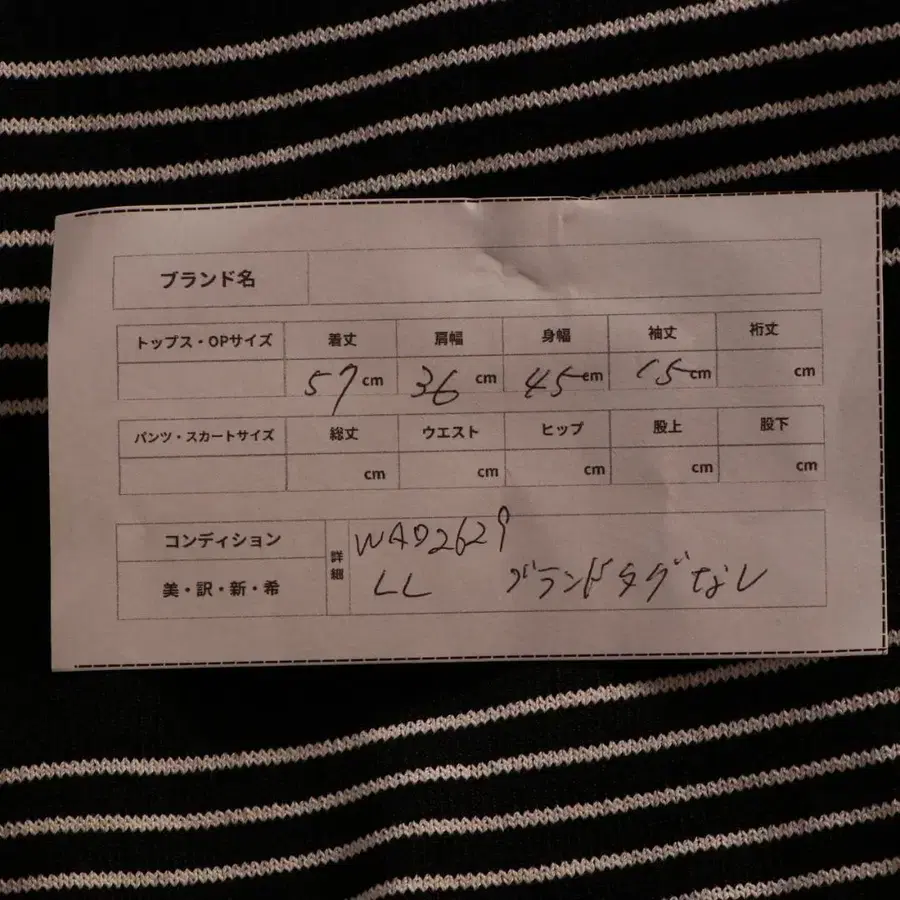 ブランド名
トップス・OPサイズ 着丈 肩幅 身幅 袖丈 裄丈
57 cm 36 cm 45 cm 15 cm cm
パンツ・スカートサイズ 総丈 ウエスト ヒップ 股上 股下
cm cm cm cm cm
コンディション 詳細 WAD2629
美・訳・新・希 LL ブランドタグなし